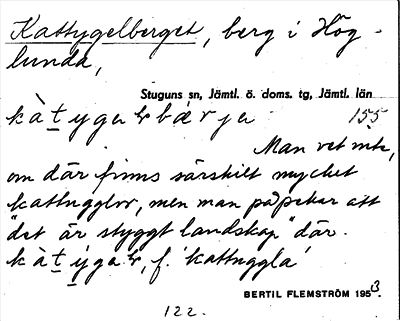 Kattygelberget, berg i Hög-
lunda,
Stuguns sn, Jämtl. ö. doms. tg, Jämtl. län
kàtygaɫbærja 155
Man vet inte,
om där finns särskilt mycket
kattugglor, men man påpekar att
"det är styggt landskap" där.
kàtýgaɫ, f. 'kattuggla'
BERTIL FLEMSTRÖM 1953.
122.